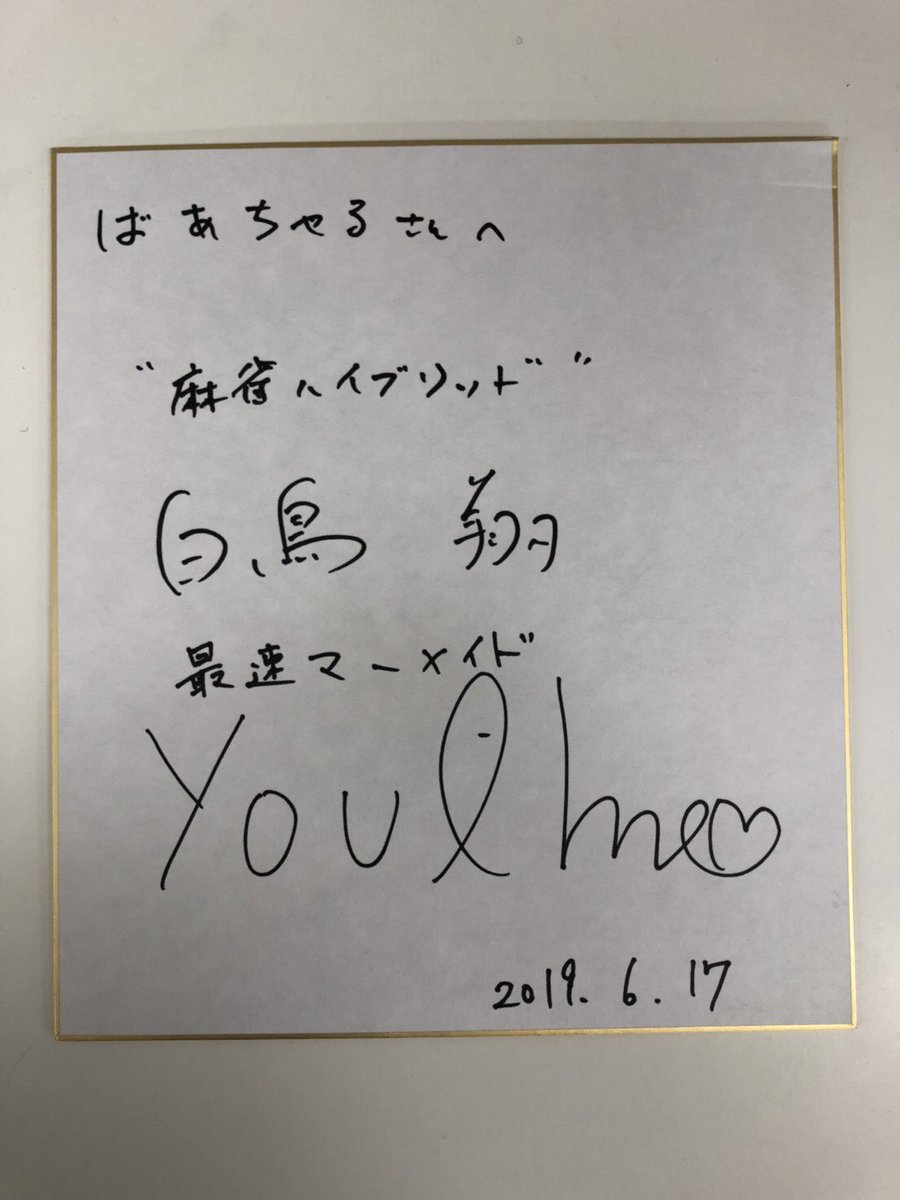 ばあちゃるさんへ
"麻雀ハイブリッド"
白鳥 翔
最速マーメイド
2019.6.17